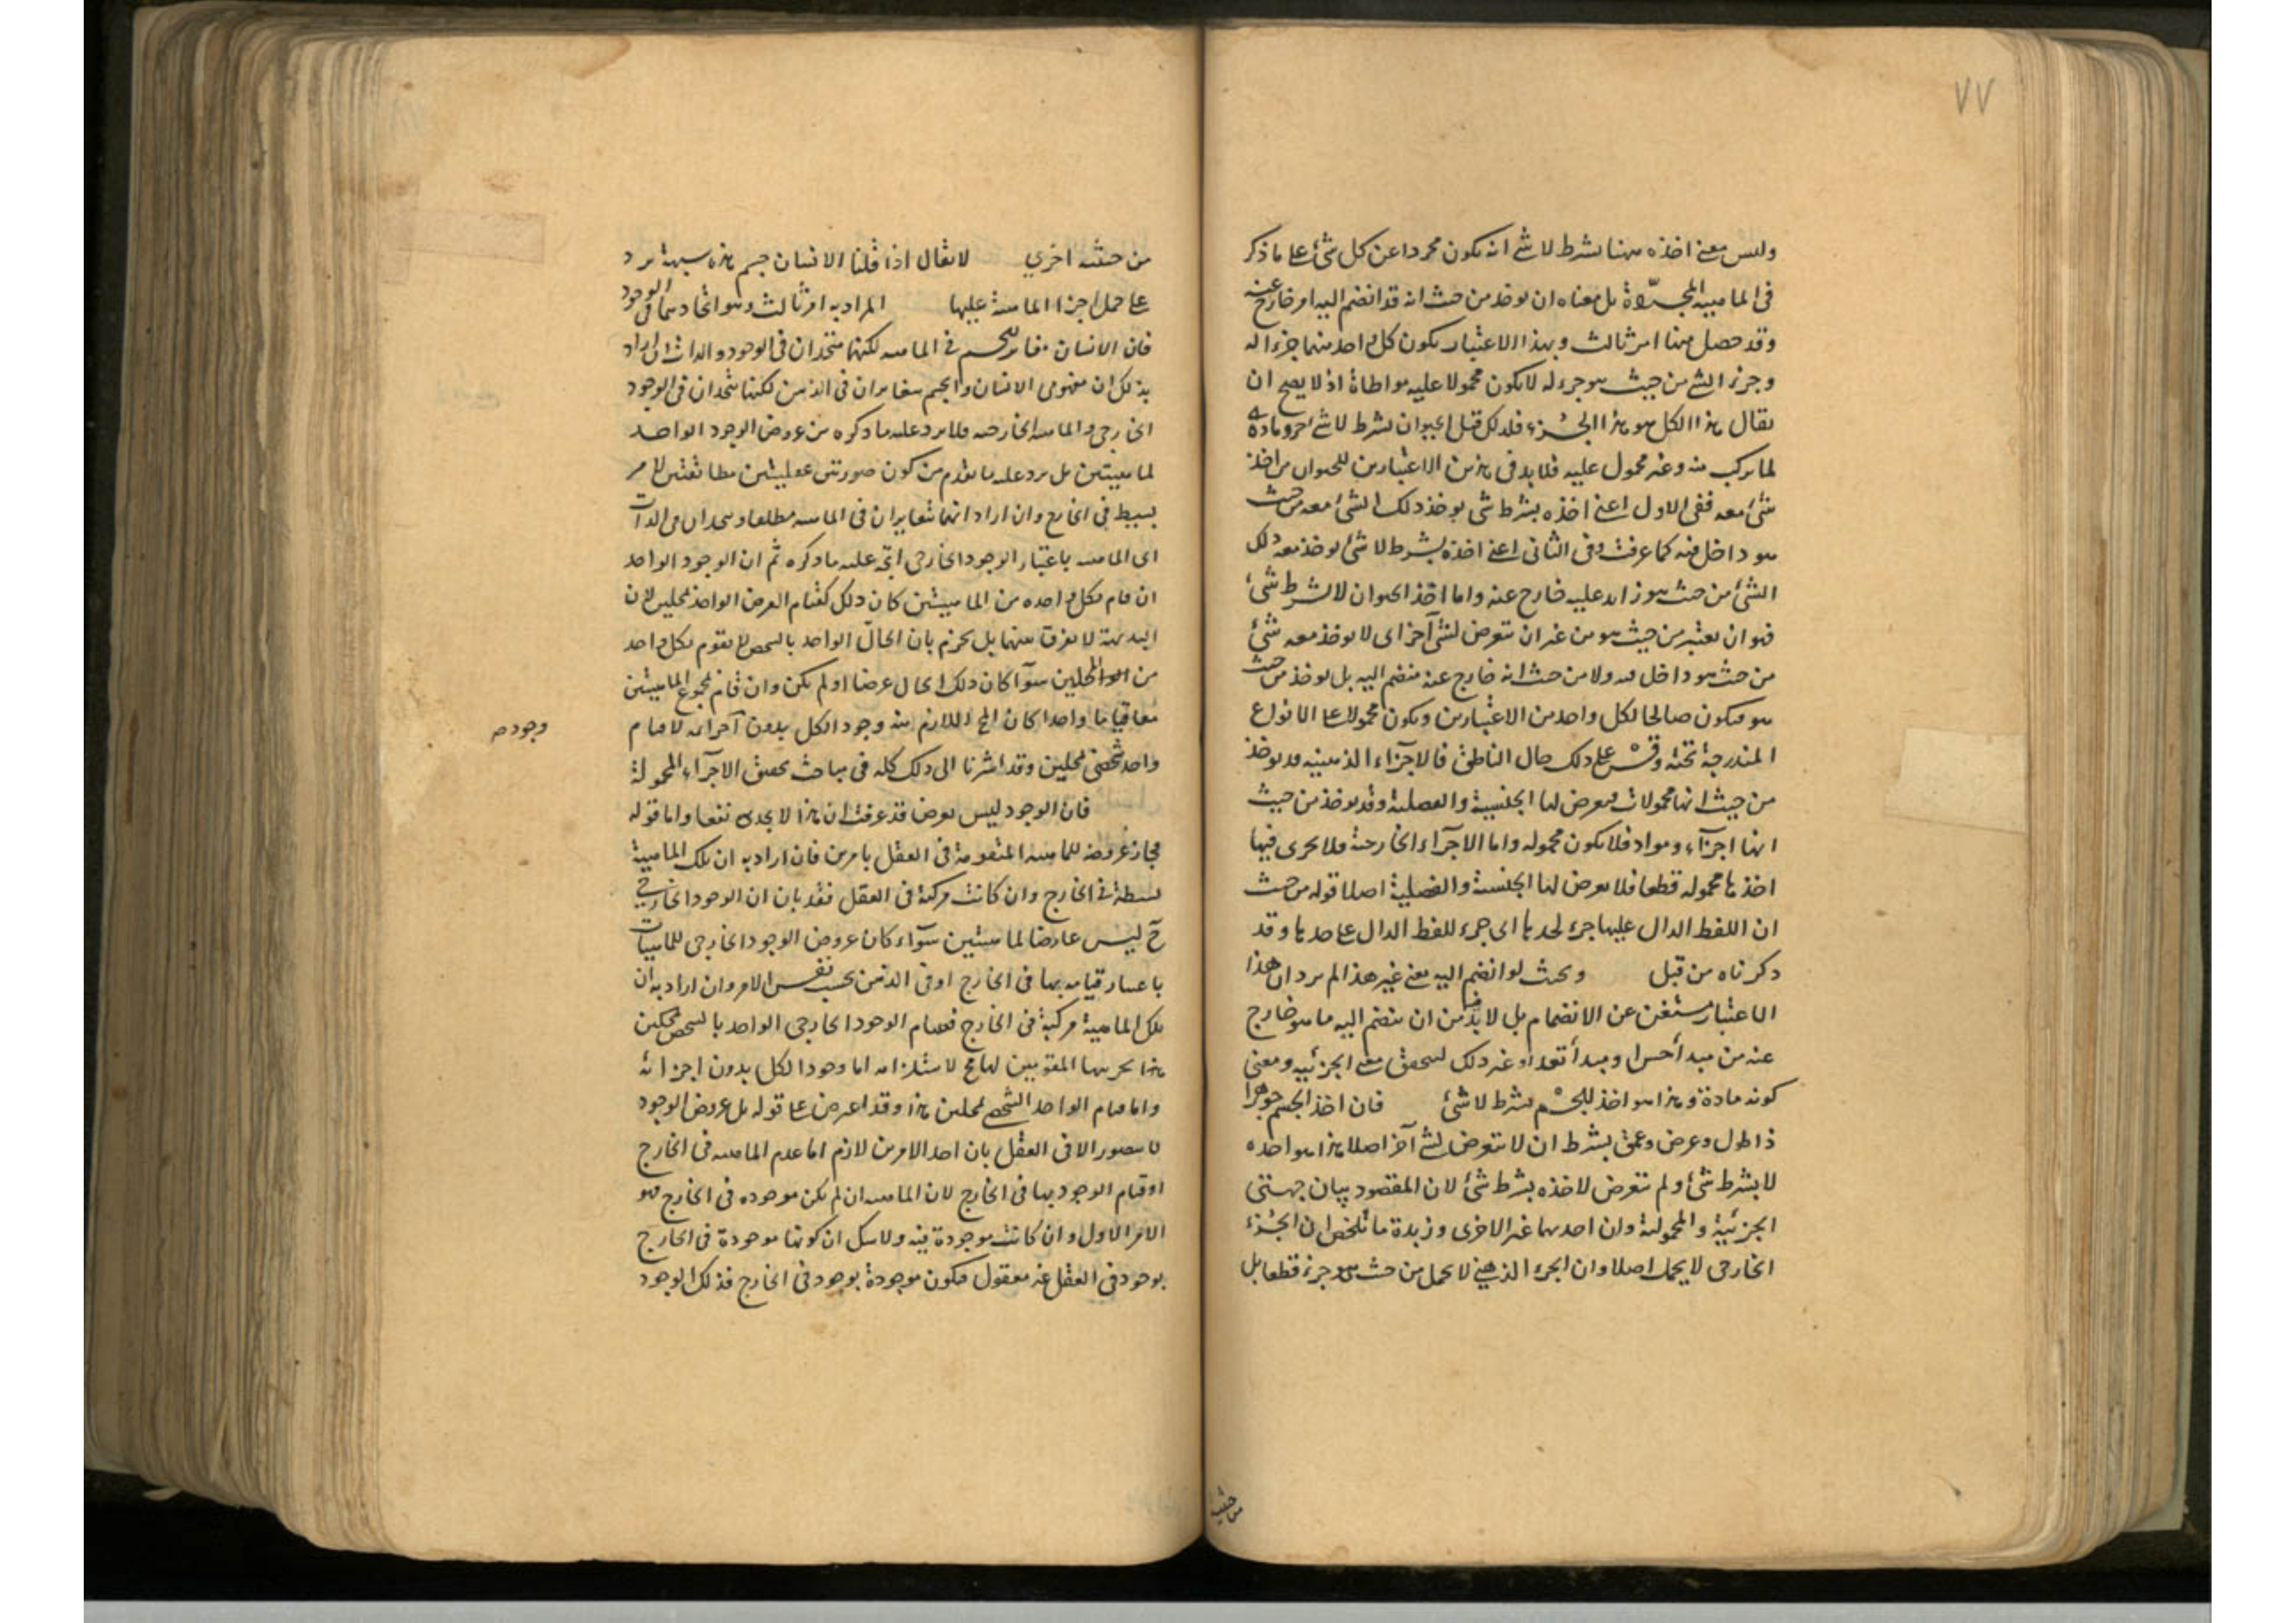 ٧٧
وليس معنى اخذه ههنا بشرط لا شئ انه يكون مجردا عن كل شئ على ما ذكر
فى الماهية المجردة بل معناه ان يوخذ من حيث انه قد انضم اليه امر خارج عنه
وقد حصل منهما امر ثالث وبهذا الاعتبار يكون كل واحد منهما جزءا له
وجزء الشئ من حيث هو جزء له لا يكون محمولا عليه مواطاة اذ لا يصح ان
يقال هذا الكل هو هذا الجزء فلذلك قيل الحيوان بشرط لا شئ جزء ومادة
لما تركب منه وغير محمول عليه فلا بد فى هذين الاعتبارين للحيوان من اخذ
شئ معه ففى الاول اعنى اخذه بشرط شئ يوخذ ذلك الشئ معه من حيث
هو داخل فيه كما عرفت وفى الثانى اعنى اخذه بشرط لا شئ يوخذ معه ذلك
الشئ من حيث هو زايد عليه خارج عنه واما اخذ الحيوان لا بشرط شئ
فهو ان يعتبر من حيث هو من غير ان يتعرض لشئ آخر اى لا يوخذ معه شئ
من حيث هو داخل فيه ولا من حيث انه خارج عنه منضم اليه بل يوخذ من حيث
هو فيكون صالحا لكل واحد من الاعتبارين ويكون محمولا على الانواع
المندرجة تحته وقس على ذلك حال الناطق فالاجزاء الذهنية قد يوخذ
من حيث انها محمولات فيعرض لها الجنسية والفصلية وقد يوخذ من حيث
انها اجزآء ومواد فلا يكون محمولة واما الاجزآء الخارجية فلا يجرى فيها
اخذها محمولة قطعا فلا يعرض لها الجنسية والفصلية اصلا قوله من حيث
ان اللفظ الدال عليها جزء لحدها اى جزء للفظ الدال على حدها وقد
ذكرناه من قبل وبحيث لو انضم اليه معنى غير هذا لم يرد ان هذا
الاعتبار مستغن عن الانضمام بل لا بد من ان ينضم اليه ما هو خارج
عنه من مبدأ حس او مبدأ تغذ او غير ذلك ليتحقق معنى الجزئية ومعنى
كونه مادة وهذا هو اخذ للجسم بشرط لا شئ فان اخذ الجسم جوهرا
ذا طول وعرض وعمق بشرط ان لا يتعرض لشئ آخر اصلا هذا هو اخذه
لا بشرط شئ ولم يتعرض لاخذه بشرط شئ لان المقصود بيان جهتى
الجزئية والمحمولية وان احديهما غير الاخرى وزبدة ما تلخص ان الجزء
الخارجى لا يحمل اصلا وان الجزء الذهنى لا يحمل من حيث هو جزء قطعا بل
من حيث
من حيثية اخرى لا يقال اذا قلنا الانسان جسم هذه شبهة يرد
على حمل اجزاء الماهية عليها المراد به امر ثالث وهو اتحادهما فى الوجود
فان الانسان مغاير للجسم فى الماهية لكنهما متحدان فى الوجود والذات ان اراد
بذلك ان مفهومى الانسان والجسم متغايران فى الذهن لكنهما متحدان فى الوجود
الخارجى والماهية الخارجية فلا يرد عليه ما ذكره من عروض الوجود الواحد
لماهيتين بل يرد عليه ما تقدم من كون صورتين عقليتين مطابقتين لامر
بسيط فى الخارج وان اراد انهما متغايران فى الماهية مطلقا ومتحدان فى الذات
اى الماهية باعتبار الوجود الخارجى اتجه عليه ما ذكره ثم ان الوجود الواحد
ان قام بكل واحدة من الماهيتين كان ذلك كقيام العرض الواحد بمحلين لان
البديهة لا يفرق بينهما بل يجزم بان الحال الواحد بالشخص لا يقوم بكل واحد
من المحلين سوآء كان ذلك الحال عرضا او لم يكن وان قام بمجموع الماهيتين
معا قياما واحدا كان المح اللازم منه وجود الكل بدون آجزائه لا قيام
وجوده
واحد شخصى بمحلين وقد اشرنا الى ذلك كله فى مباحث تحقيق الاجزآء المحمولة
فان الوجود ليس بعرض قد عرفت ان هذا لا يجدى نفعا واما قوله
فجاز عروضه للماهية المتقومة فى العقل بامرين فان اراد به ان تلك الماهية
بسيطة فى الخارج وان كانت مركبة فى العقل فقد بان ان الوجود الخارجى
ح ليس عارضا لماهيتين سوآء كان عروض الوجود الخارجى للماهيات
باعتبار قيامه بها فى الخارج او فى الذهن بحسب نفس الامر وان اراد به ان
تلك الماهية مركبة فى الخارج فقيام الوجود الخارجى الواحد بالشخص بمحلين
هذا بجزئيها المقومين لها مح لاستلزامه اما وجود الكل بدون اجزائه
واما قيام الواحد الشخصى بمحلين هذا وقد اعترض على قوله بل عروض الوجود
لا يتصور الا فى العقل بان احد الامرين لازم اما عدم الماهية فى الخارج
او قيام الوجود بها فى الخارج لان الماهية ان لم يكن موجودة فى الخارج فهو
الامر الاول وان كانت موجودة فيه ولا شك ان كونها موجودة فى الخارج
بوجود فى العقل غير معقول فيكون موجودة بوجود فى الخارج فذلك الوجود